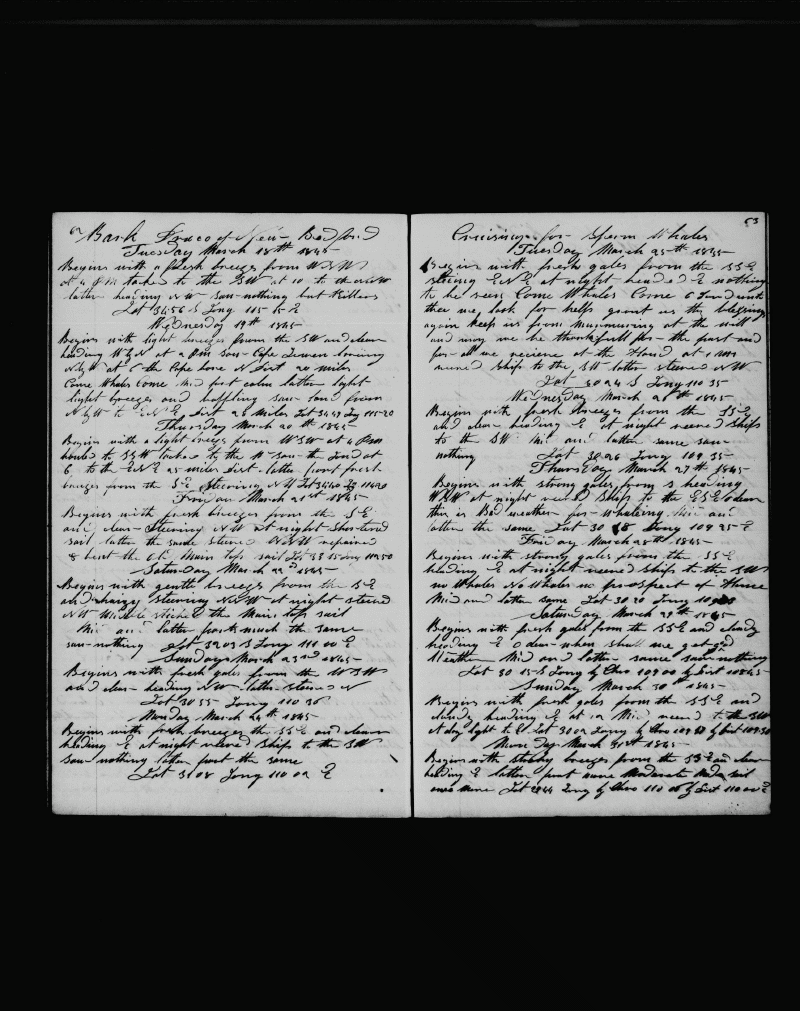 Bark Draco of New Bedford
Tuesday March 18th 1845
Begins with a fresh breeze from WSW
at PM tacked to the SW at 10 to the
latter heading NW saw nothing but Killers
Lat 34 56 S Long 115 15 E
Wednesday 19th 1845
Begins with light breezes from the SW and clear
heading W N at PM saw Cape bearing
at 6 the Cape bore N Dist 20 miles
Come Whales Come Mid part calm latter light
light breezes and baffling saw land from
to Dist 28 Miles Lat Long 115 20
Thursday March 20th 1845
Begins with a light breeze from WSW at 4 PM
to SSW tacked to the saw the land at
6 to the ENE 25 miles dist latter part fresh
breezes from the SE Steering NW Lat
Friday March 21st 1845
Begins with fresh breezes from the SE
and clear Steering NW at night shortened
sail latter the same steered NNW repaired
& bent the Old Main Top sail Lat 33 Long 50
Saturday March 22nd 1845
Begins with gentle breezes from the SE
and steering NNW at night steered
NW the Main top sail
Mid and latter part much the same
saw nothing Lat 32 03 S Long 111 00 E
Sunday March 23rd 1845
Begins with fresh gales from the WSW
and clear heading NW latter steered N
Lat 30 35 Long 110 36
Monday March 24th 1845
Begins with fresh breezes the SSE and clear
heading E at night veered Ship to the SW
Saw nothing latter part the same
Lat 31 08 Long 110 02 E
53
Cruising for Sperm Whales
Tuesday March 25th 1845
Begins with fresh gales from the SSE
steering ENE at night headed E nothing
to be seen Come Whales Come O Lord unto
thee we look for help grant us thy blessing
again keep us from murmuring at thy will
and may we be thankfull for the past and
for all we recieve at thy Hand at 1 AM
veered Ship to the SW latter steered NW
Lat 30 24 S Long 110 35
Wednesday March 26th 1845
Begins with fresh breezes from the SSE
and clear heading E at night veered Ship
to the SW Mid and latter same saw
nothing Lat 30 26 Long 109 35
Thursday March 27th 1845
Begins with strong gales from S heading
WSW at night veered Ship to the ESE O dear
this is Bad weather for Whaleing Mid and
latter the same Lat 30 18 Long 109 25 E
Friday March 28th 1845
Begins with strong gales from the SSE
heading E at night veered Ship to the SW
no Whales No Whales no prospect of Home
Mid and latter same Lat 30 20 Long
Saturday March 29th 1845
Begins with fresh gales from the SSE and cloudy
heading E O dear when shall we get good
Weather Mid and latter same saw nothing
Lat 30 15 S Long by Chro 109 00 by Dist 108 45
Sunday March 30th 1845
Begins with fresh gales from the SSE and
cloudy heading E at 12 Mid veered to the SW
at day light to E Lat 30 02 Long by Chro 109 58 by Dist 109 30
Monday March 31st 1845
Begins with steady breezes from the SSE and clear
heading E latter part more Moderate Made sail
once more Lat 29 44 Long by Chro 110 06 by Dist 110 00 E